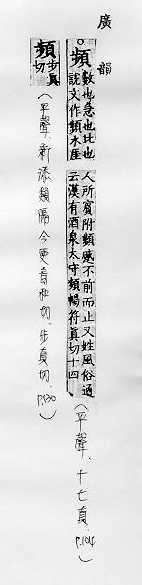 廣韻
。頻 數也急也比也說文作頻水厓
人所賓附頻蹙不前而止又姓風俗通
云漢有酒泉太守頻暢符真切十四
(平聲,十七真,P.104)
頻 步真切
(平聲,新添類隔今更音和切,步真切,P.130)